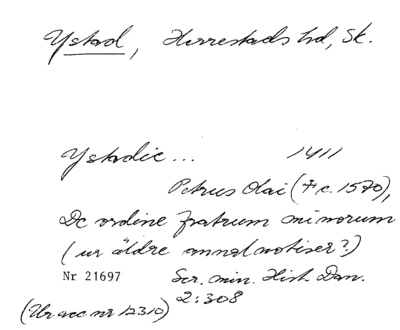 Ystad, Herrestads hd, Sk.
Ystadie... 1411
Petrus Olai († c. 1570),
De ordine fratrum minorum
(ur äldre annalnotiser?)
Nr 21697 Scr. min. Hist. Dan.
2:308
(Ur acc nr 12310)